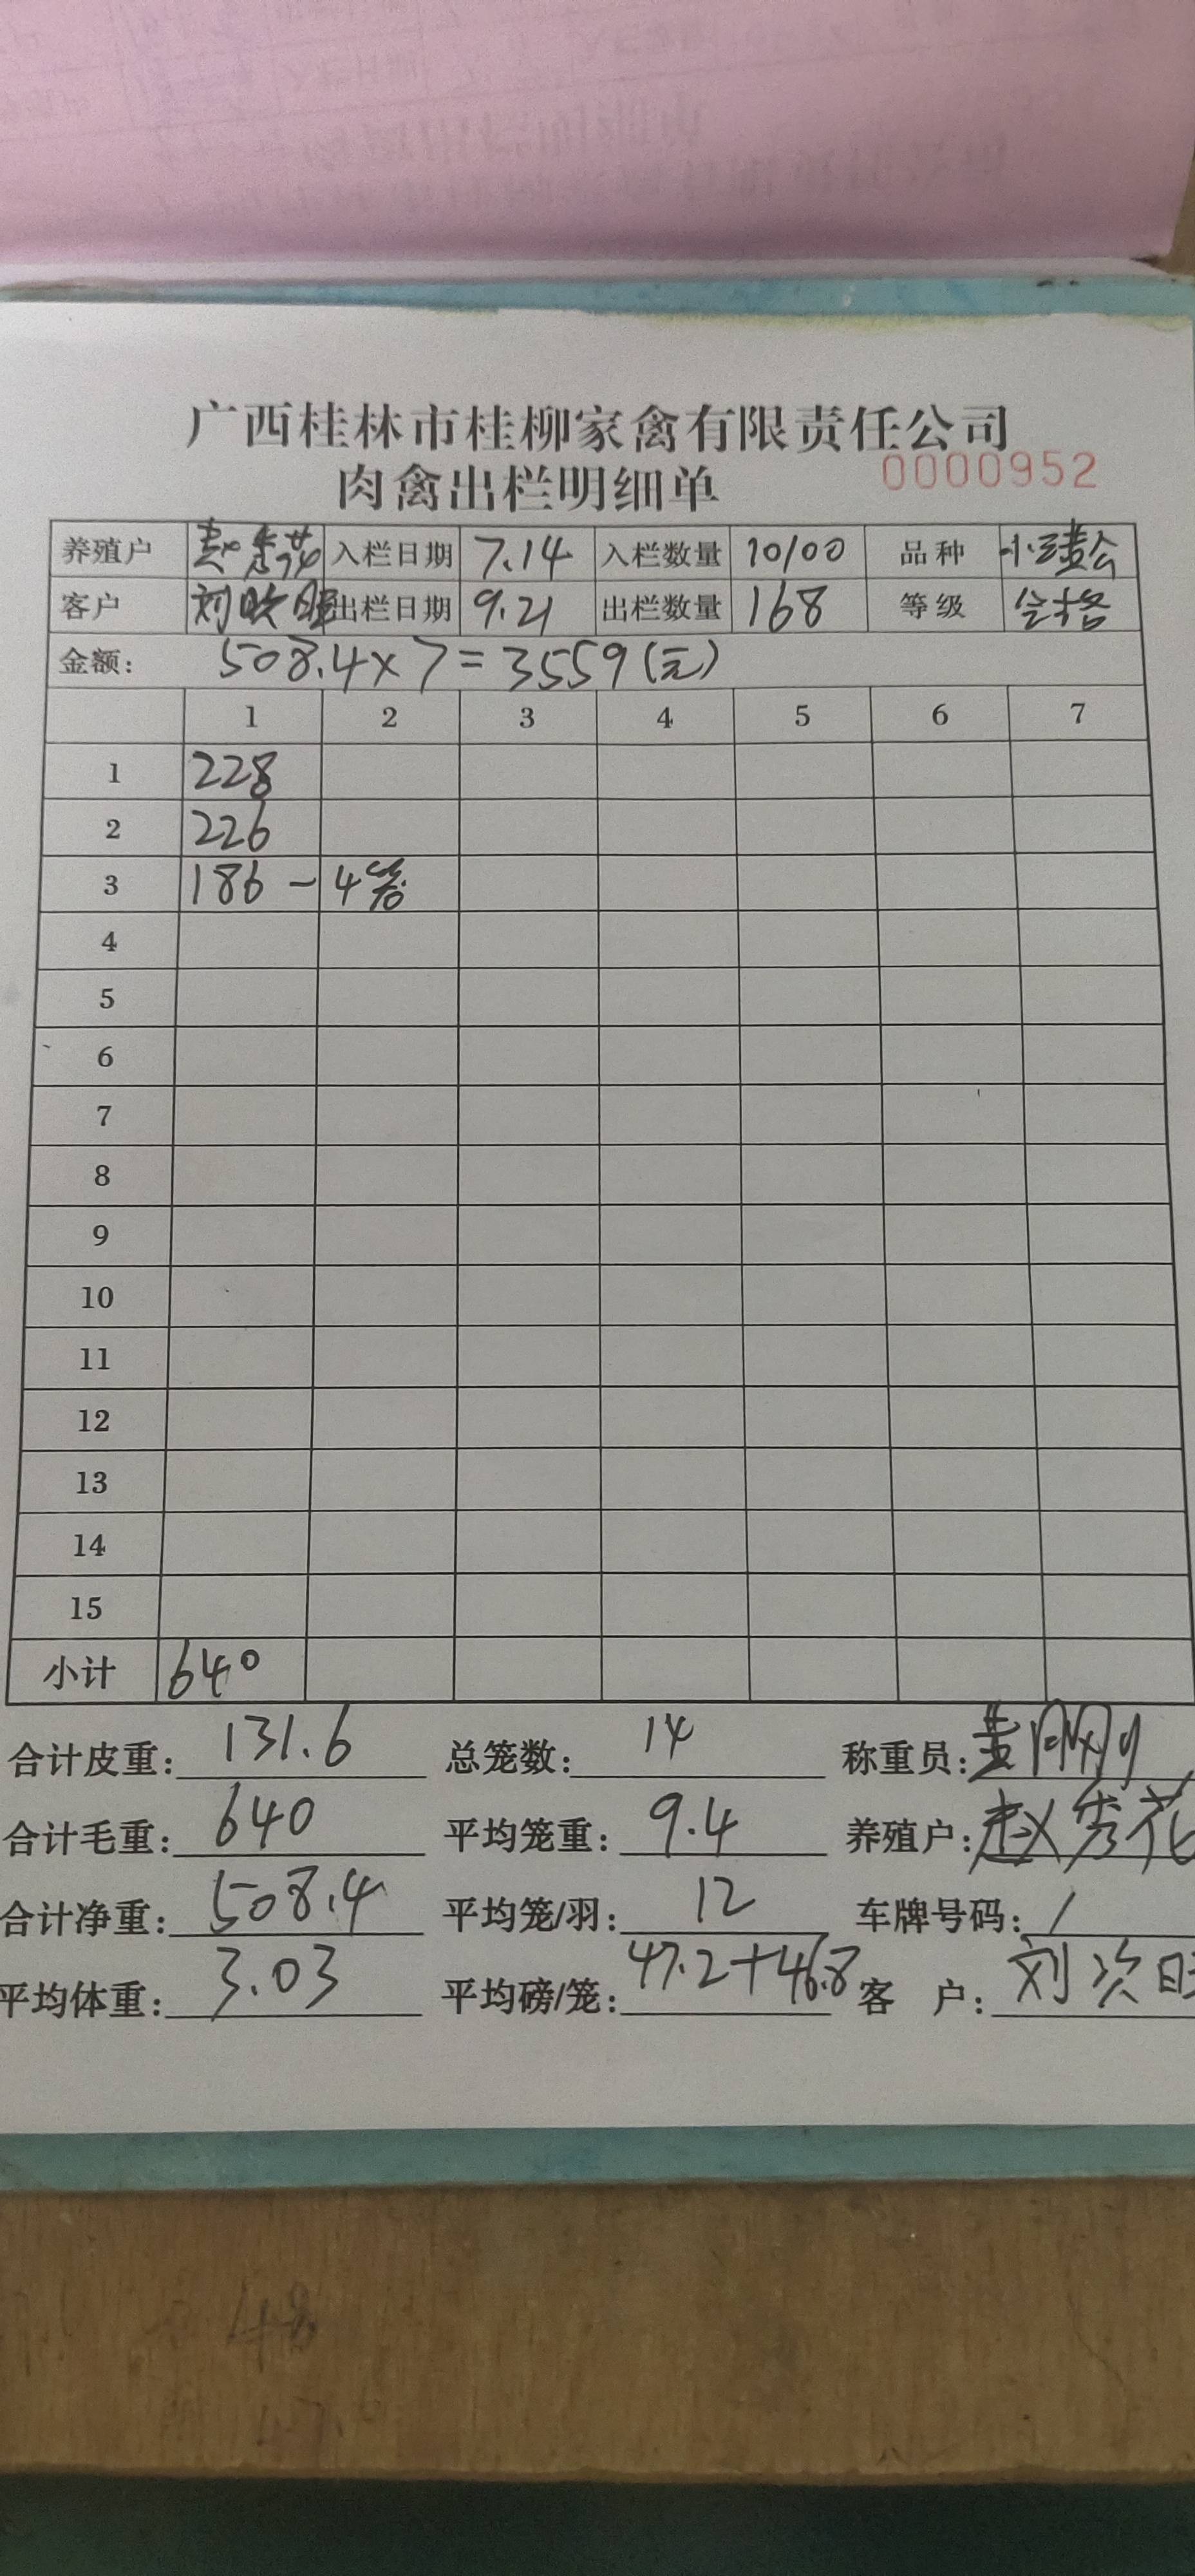 广西桂林市桂柳家禽有限责任公司
肉禽出栏明细单 0000952
养殖户 赵秀花 入栏日期 7.14 入栏数量 10100 品种
客户 刘 出栏日期 9.21 出栏数量 168 等级 合格
金额: 508.4×7=3559(元)
1 2 3 4 5 6 7
1 228
2 226
3 186 - 4笼
4
5
6
7
8
9
10
11
12
13
14
15
小计 640
合计皮重: 131.6 总笼数: 14 称重员: 黄刚刚
合计毛重: 640 平均笼重: 9.4 养殖户: 赵秀花
合计净重: 508.4 平均笼/羽: 12 车牌号码: /
平均体重: 3.03 平均磅/笼: 47.2+46.8 客 户: 刘次旺